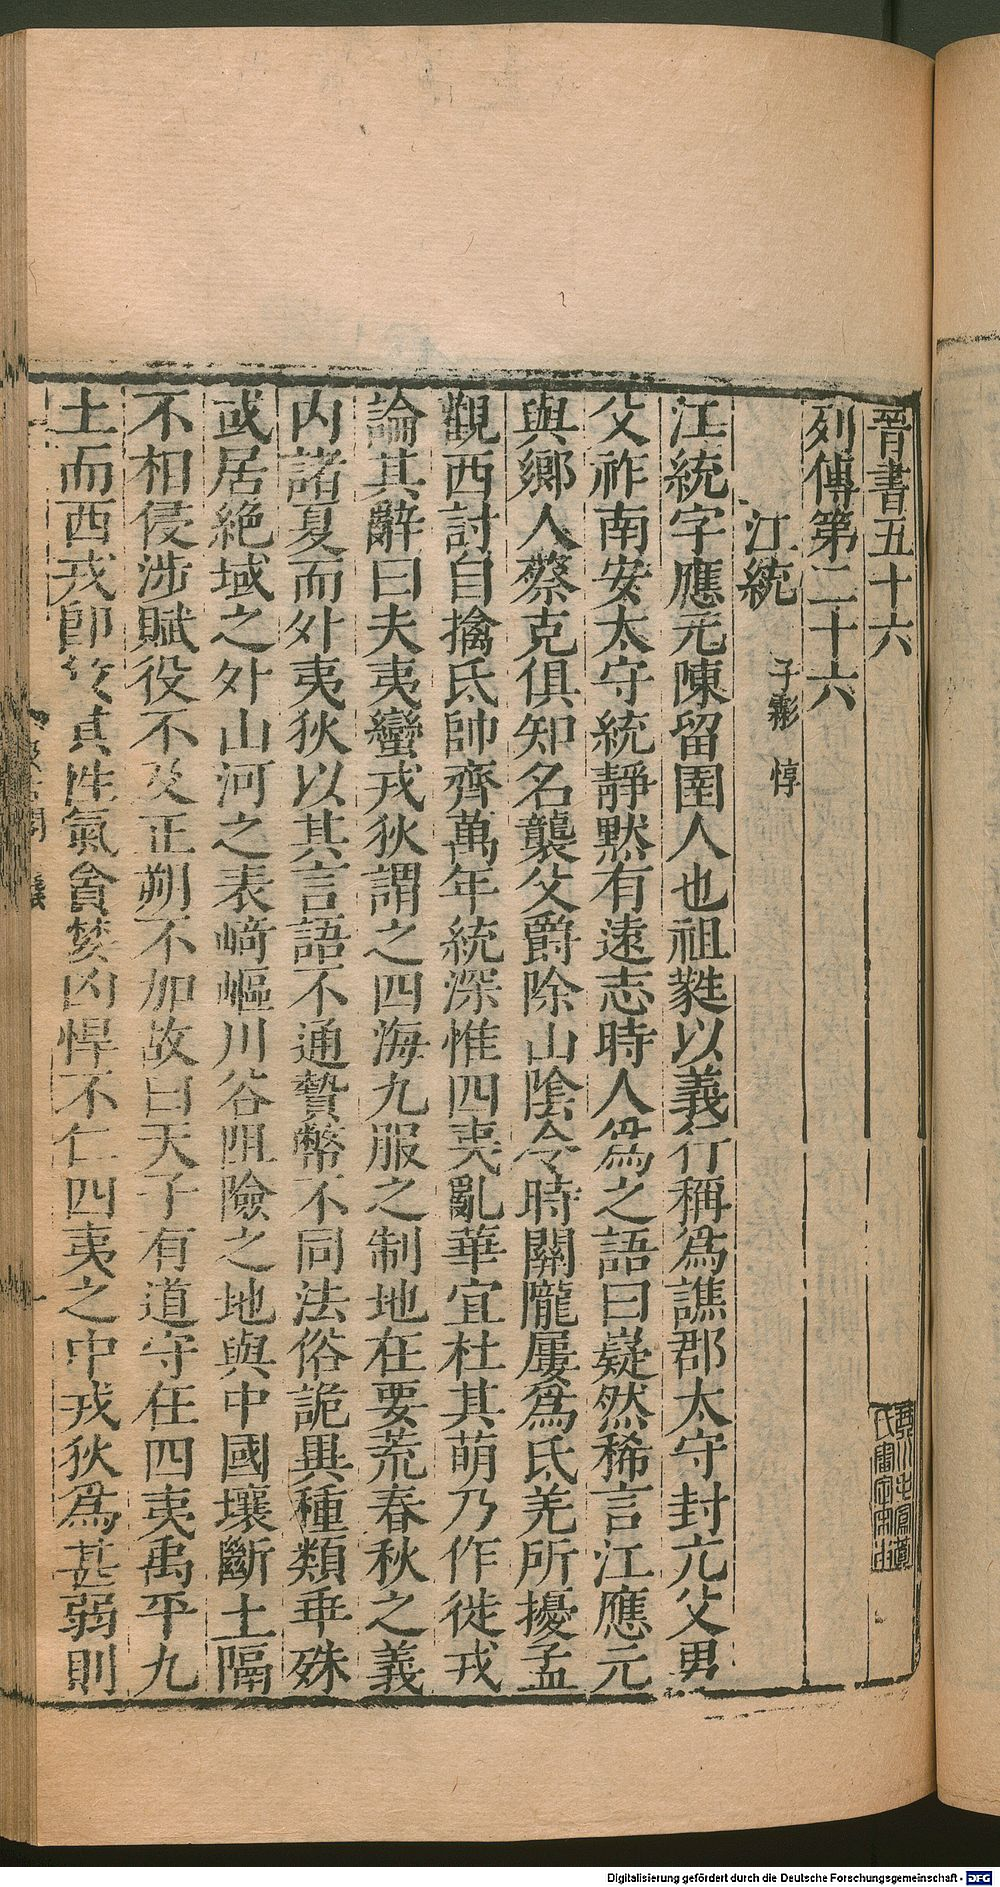 晉書五十六
列傳第二十六
江統 子虨 惇
江統字應元陳留圉人也祖蕤以義行稱爲譙郡太守封亢父男
父祚南安太守統靜默有遠志時人爲之語曰嶷然稀言江應元
與鄉人蔡克俱知名襲父爵除山陰令時關隴屢爲氐羌所擾孟
觀西討自擒氐帥齊萬年統深惟四夷亂華宜杜其萌乃作徙戎
論其辭曰夫夷蠻戎狄謂之四海九服之制地在要荒春秋之義
內諸夏而外夷狄以其言語不通贄幣不同法俗詭異種類乖殊
或居絕域之外山河之表崎嶇川谷阻險之地與中國壤斷土隔
不相侵涉賦役不及正朔不加故曰天子有道守在四夷禹平九
土而西戎即敘其性氣貪婪凶悍不仁四夷之中戎狄爲甚弱則
Digitalisierung gefördert durch die Deutsche Forschungsgemeinschaft - DFG